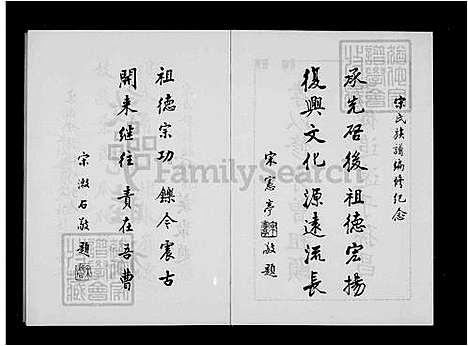 宋氏族譜編修紀念
承先啓後祖德宏揚
復興文化源遠流長
宋憲亭敬題
祖德宗功鑠今震古
開來繼往責在吾曹
宗漱石敬題
FamilySearch